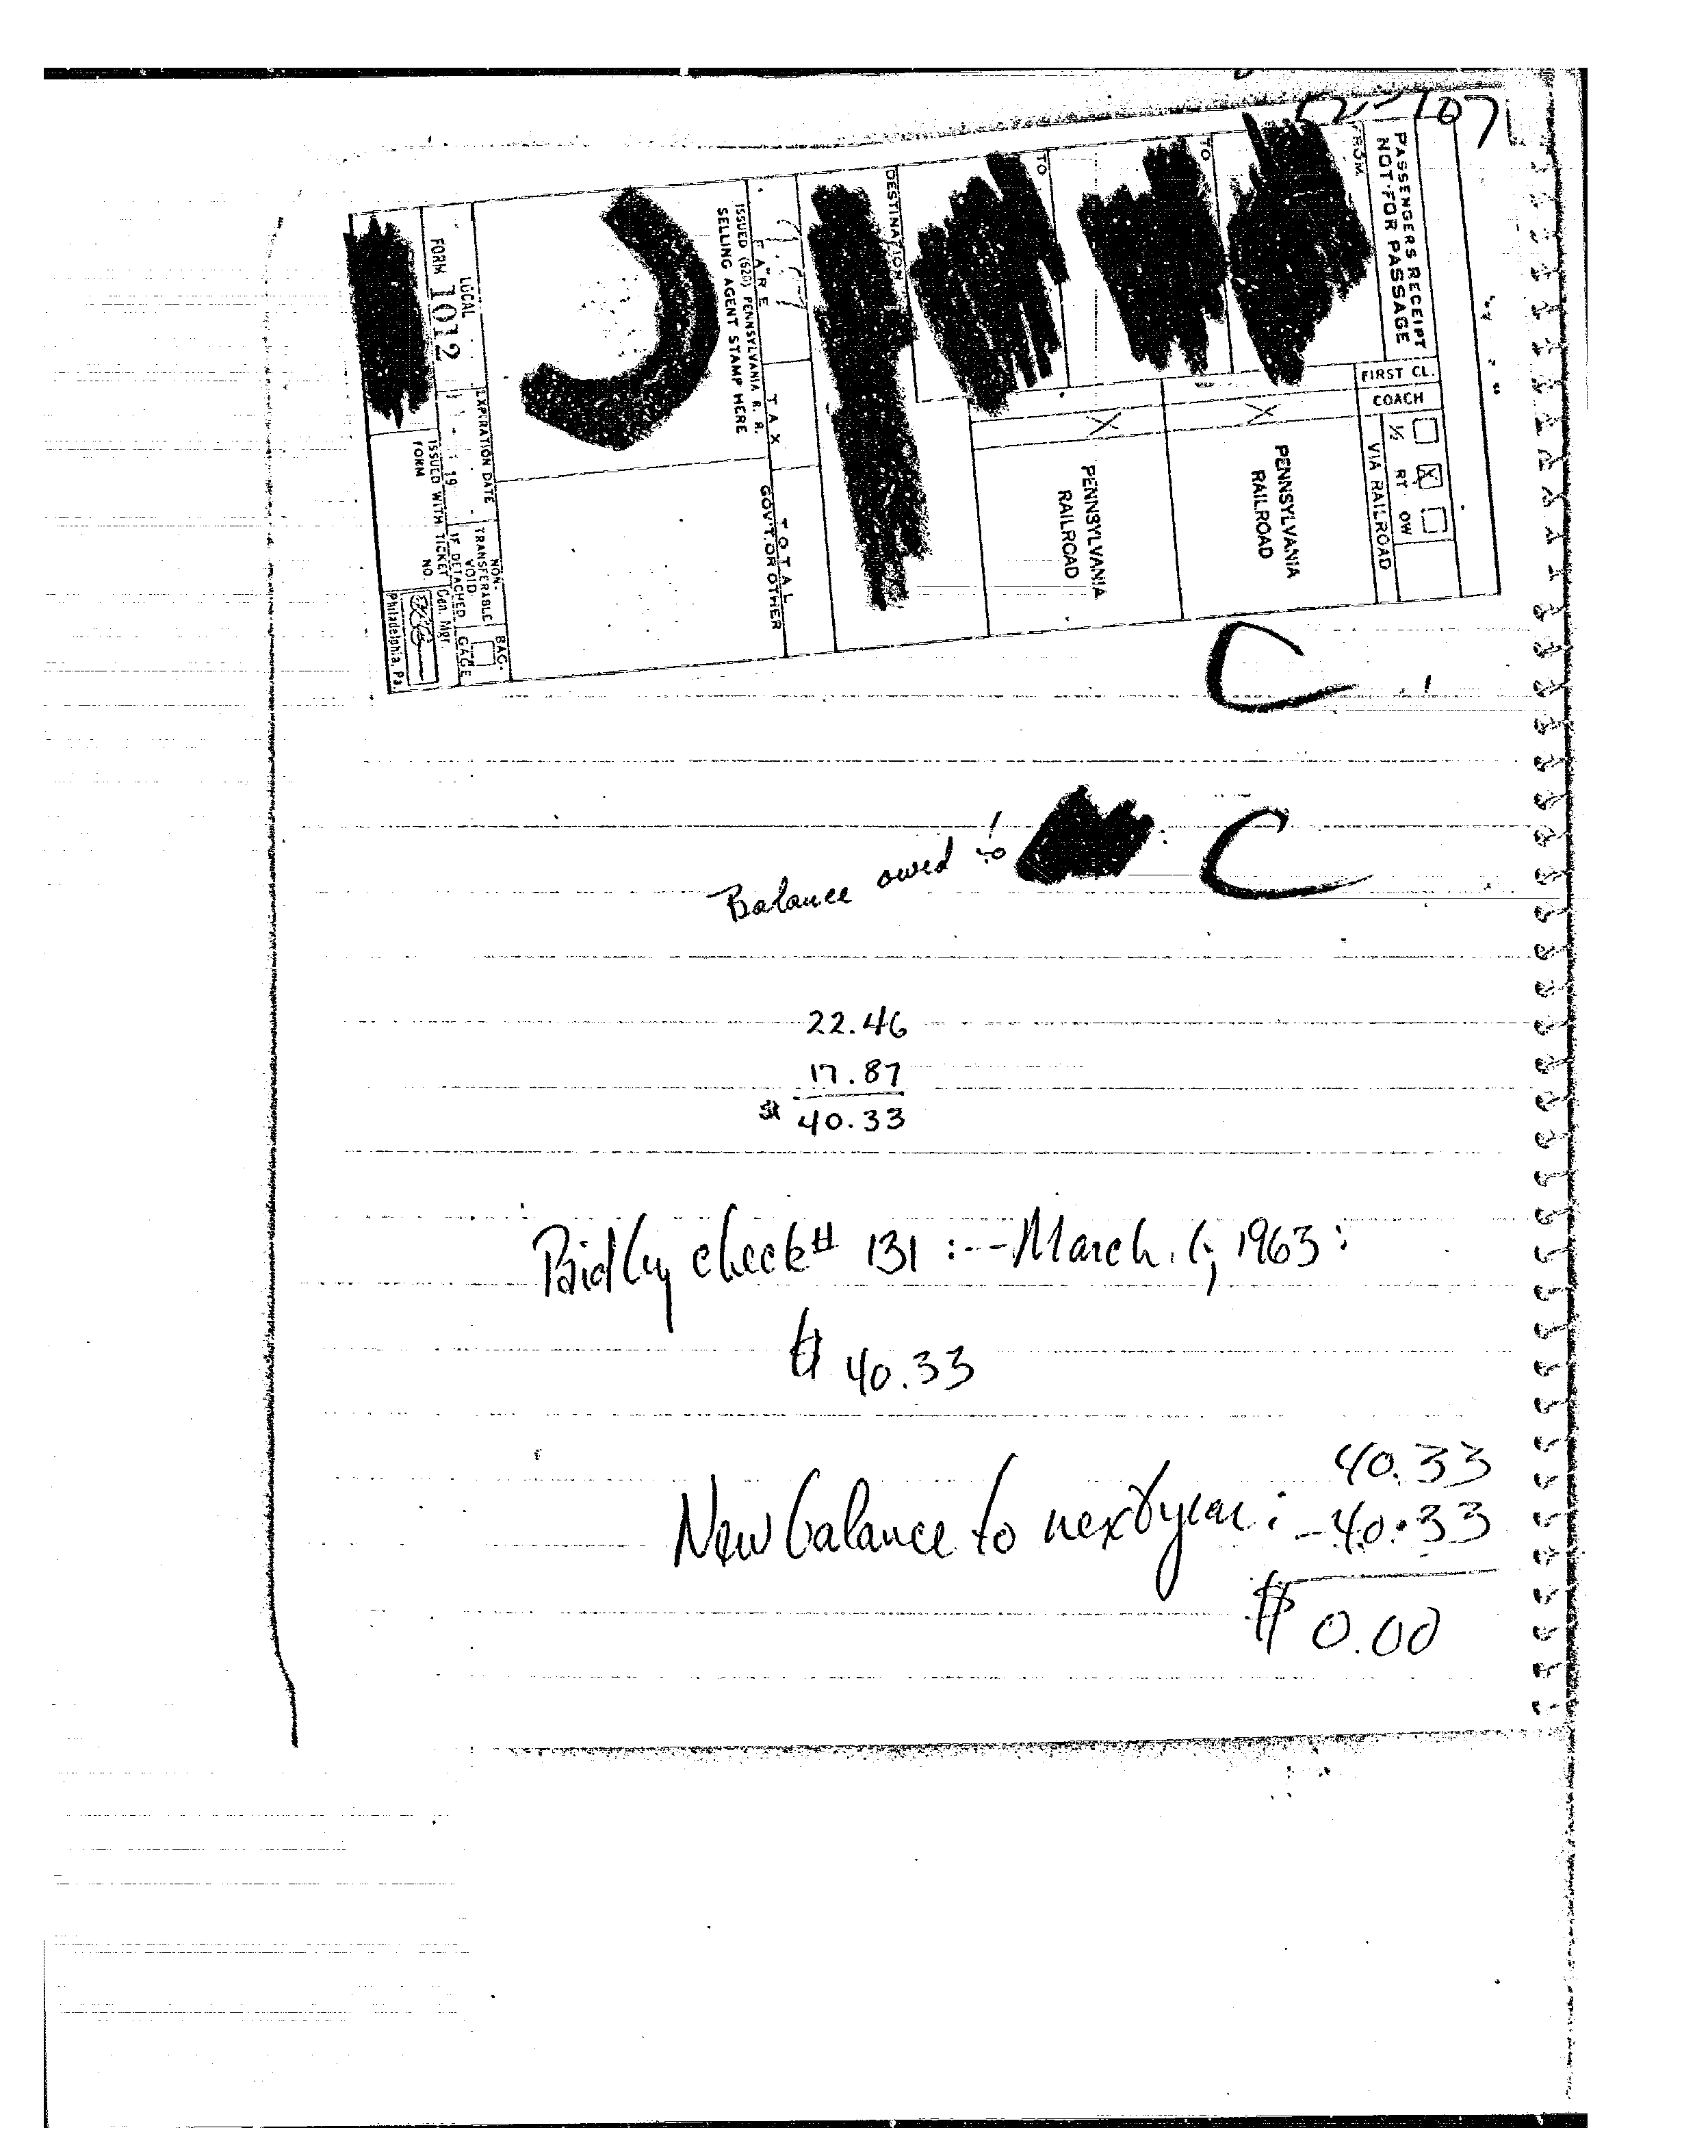 107
PASSENGERS RECEIPT
NOT FOR PASSAGE
FIRST CL.
COACH
½ RT OW
X
VIA RAILROAD
FROM
TO
X
PENNSYLVANIA
RAILROAD
TO
X
PENNSYLVANIA
RAILROAD
DESTINATION
FARE TAX TOTAL
ISSUED (620) PENNSYLVANIA R. R. GOV'T. OR OTHER
SELLING AGENT STAMP HERE
LOCAL
FORM 1012
EXPIRATION DATE
19
NON-
TRANSFERABLE
VOID
IF DETACHED
BAG-
GAGE
ISSUED WITH TICKET
FORM NO.
Gen. Mgr.
Philadelphia, Pa.
C
Balance owed to : C
22.46
17.87
$ 40.33
Paid by check # 131 :-- March 1, 1963:
$ 40.33
New balance to next year: 40.33
-40.33
$ 0.00